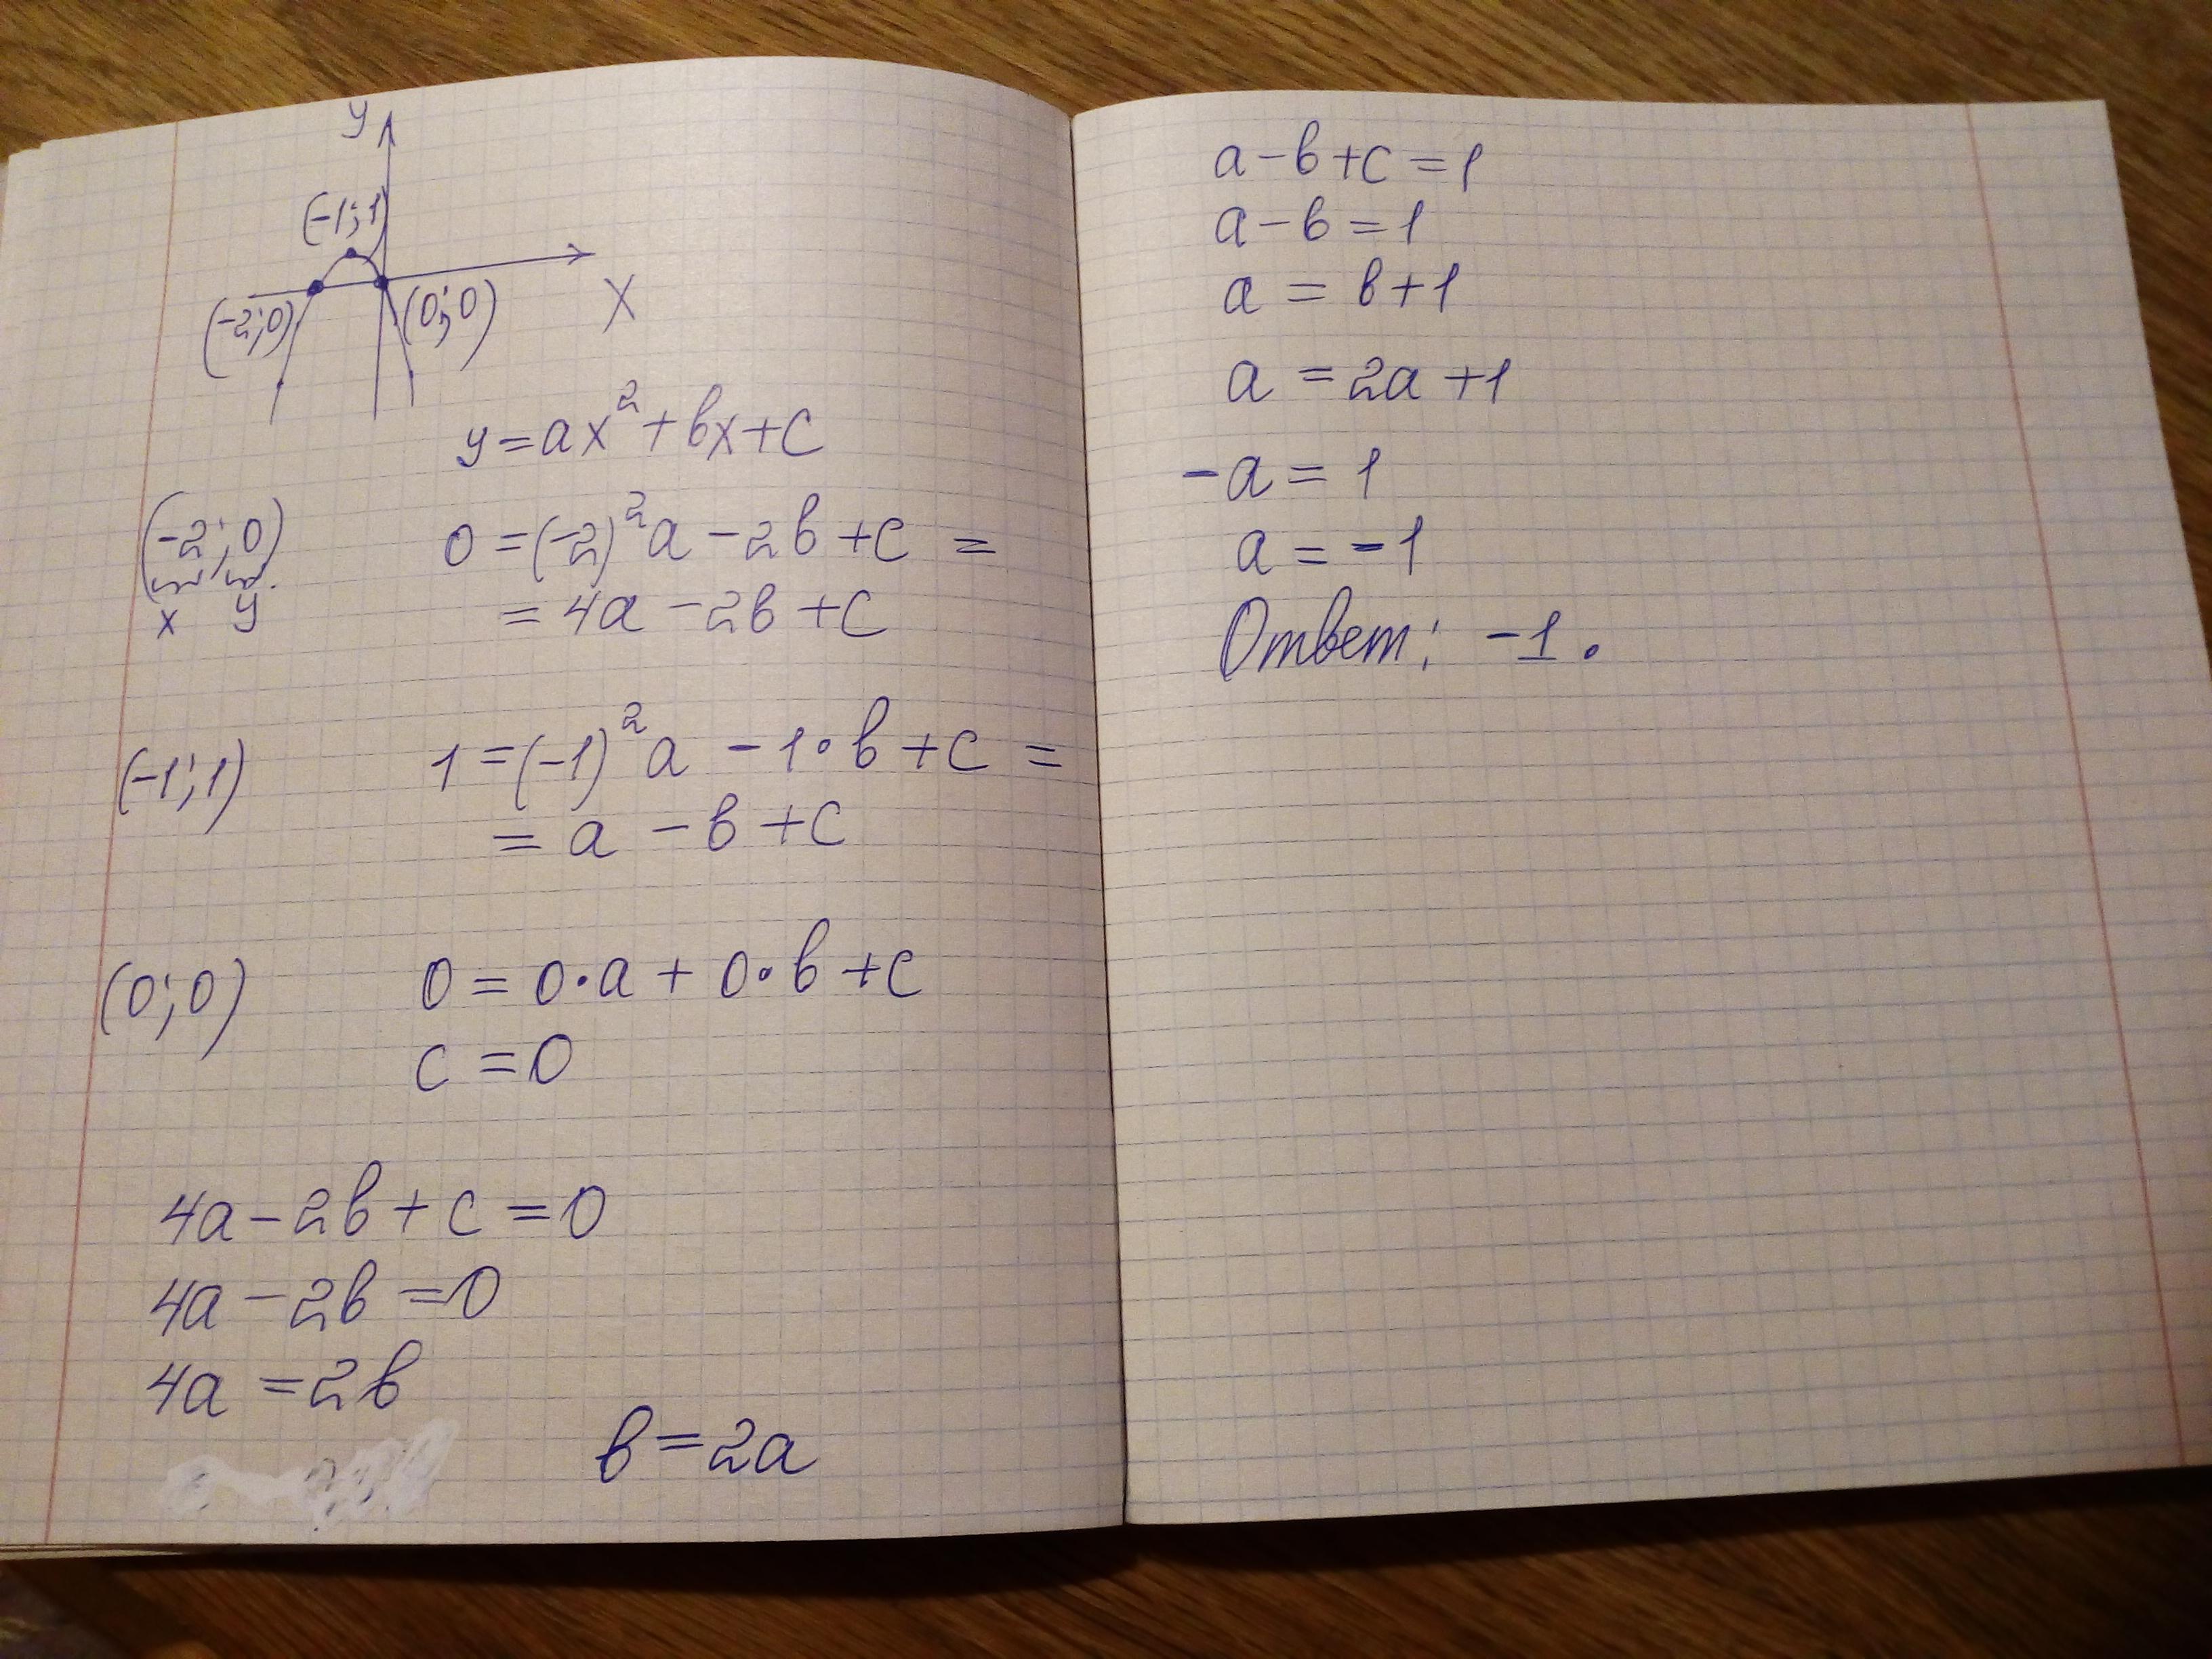 y
(-1;1)
(-2;0) (0;0) x
y=ax²+bx+c
(-2;0) 0=(-2)²a-2b+c=
x y =4a-2b+c
(-1;1) 1=(-1)²a-1•b+c=
=a-b+c
(0;0) 0=0•a+0•b+c
c=0
4a-2b+c=0
4a-2b=0
4a=2b
b=2a
a-b+c=1
a-b=1
a=b+1
a=2a+1
-a=1
a=-1
Ответ: -1.